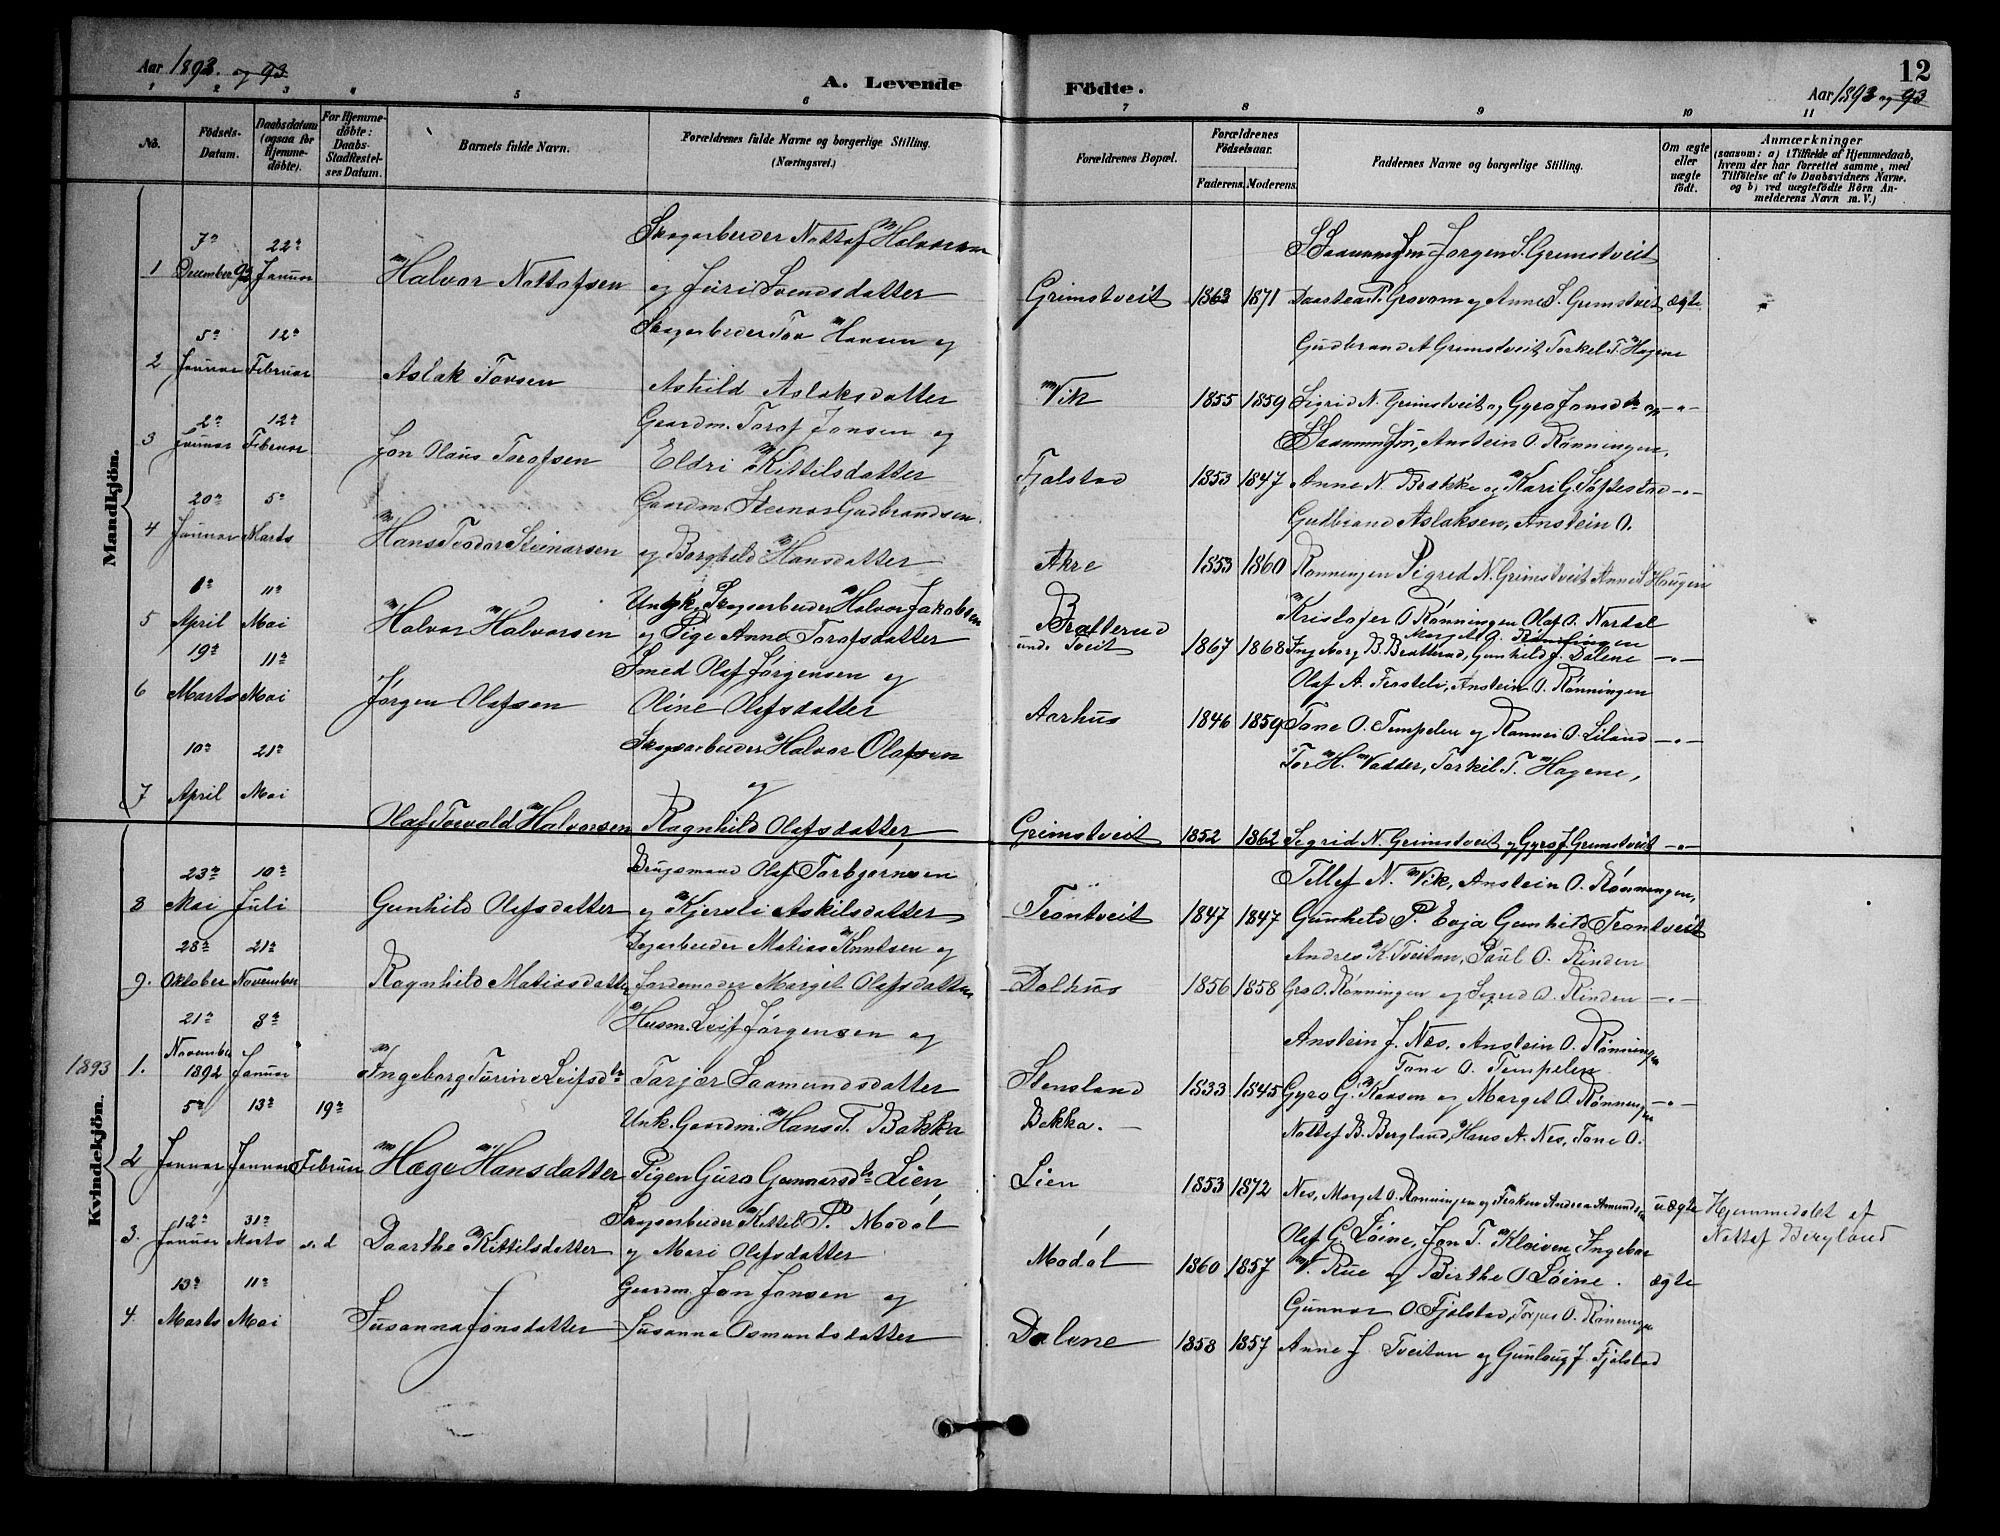 Aar 1893. og 93
A. Levende Födte.
12
Aar 1893 og 93
1 2 3 4 5 6 7 8 9 10 11
No.
Födsels-Datum.
Daabsdatum (ogsaa for Hjemme-döbte).
For Hjemme-döbte: Daabs-Stadfæstel-ses Datum.
Barnets fulde Navn.
Forældrenes fulde Navne og borgerlige Stilling. (Næringsvei.)
Forældrenes Bopæl.
Forældrenes Födselsaar.
Faderens. Moderens.
Faddernes Navne og borgerlige Stilling.
Om ægte eller uægte födt.
Anmærkninger
(saasom: a) i Tilfælde af Hjemmedaab, hvem der har forrettet samme, med Tilföielse af to Daabsvidners Navne. og b) ved uægtefödte Börn An-melderens Navn m. V.)
Mandkjön.
7de 22de Skogarbeider Nottof Halvorsen
1 December 92 Januar Halvor Nottofsen og Juri Svendsdatter Grimstveit 1863 1871 Jørgen S. Grimstveit
Daartea P. Grovom og Anne S. Grimstveit ægte
5te 12te Skogarbeider Tov Hansen og Gudbrand A Grimstveit Torkel T. Hagene
2 Januar Februar Aslak Tovsen Askild Aslaksdatter Vik 1855 1859 Sigrid N. Grimstveit og Gyro Jonsdtr -"-
2de 12te Gaardm. Torof Jonsen og Anstein O. Rønningen,
3 Januar Februar Jon Olaus Torofsen Eldri Kittilsdatter Fjølstad 1853 1847 Anne N. Brokke og Kari G. Toftestad -"-
20de 5te Gaardm. Steinar Gudbrandsen Gudbrand Aslaksen, Anstein O.
4 Januar Marts Hans Teodor Steinarsen og Borghild Hansdatter Akre 1853 1860 Rønningen Sigrid N. Grimstveit Anne S Haugen
6te 11te Ungk. Skogsarbeider Halvor Jakobsen Kristofer O Rønningen Olaf O. Nordal
5 April Mai Halvor Halvorsen og Pige Anne Torofsdatter Bratterud und. Tveit 1867 1868 Margit O. Rønningen
Ingeborg B. Bratterud, Gunhild J. Dalene -"-
19de 11te Smed Olaf Jørgensen og Olaf A. Fersteli, Anstein O. Rønningen
6 Marts Mai Jørgen Olafsen Oline Olafsdatter Aarhus 1846 1859 Tone O. Tempelen og Rannei O. Liland -"-
10de 21de Skogsarbeider Halvor Olafsen Tor H. Vadder, Torkil T. Hagene,
7 April Mai Olaf Torvald Halvorsen og Ragnhild Olafsdatter Grimstveit 1852 1862 Sigrid N. Grimstveit og Gyro J. Grimstveit -"-
Kvindekjön.
23de 10de Brugsmand Olaf Torbjørnsen Tellef N. Vik, Anstein O. Rønningen,
8 Mai Juli Gunhild Olafsdatter og Kjersti Askilsdatter Trontveit 1847 1847 Gunhild P. Evja Gunhild Trontveit
28de 21de Dagarbeider Matias Knutsen og Andres K. Tveitan, Paul O. Rinden
9. Oktober November Ragnhild Matiasdatter Jordemoder Margit Olafsdatter Dalhus 1856 1858 Gro O. Rønningen og Sigrid O. Rinden -"-
21de 8de Husm. Leif Jørgensen og Anstein J. Nes, Anstein O. Rønningen
1893 1. November 1892 Januar Ingeborg Turine Leifsdtr Tarjær Saamundsdatter Stensland 1833 1845 Tone O. Tempelen
Gyro G. Kaasen og Marget O. Rønningen -"-
5te 13de 19de Unk. Gaardm. Hans T. Bakka Bakka. Nottof B. Bergland, Hans A. Nes, Tone O.
2 Januar Januar Februar Hæge Hansdatter Pigen Guro Gunnarsdtr Lien Lien 1853 1872 Nes, Marget O. Rønningen og Frøken Andrea Amundsen uægte Hjemmedøbt af Nottof Bergland
12te 31te Skogsarbeider Kittel P. Modal Olaf G. Løine, Jon T. Kleiven, Ingebor
3. Januar Marts s. d Daarthe Kittilsdatter og Mari Olafsdatter Modal 1860 1857 V. Rue og Birthe O Løine. ægte
13de 11te Gaardm. Jon Jonsen og Gunnar O. Fjølstad, Torjus O. Rønningen
4. Marts Mai Susanna Jonsdatter Susanna Osmundsdatter Dalene 1858 1857 Anne J Tveitan og Gunlaug J. Fjølstad